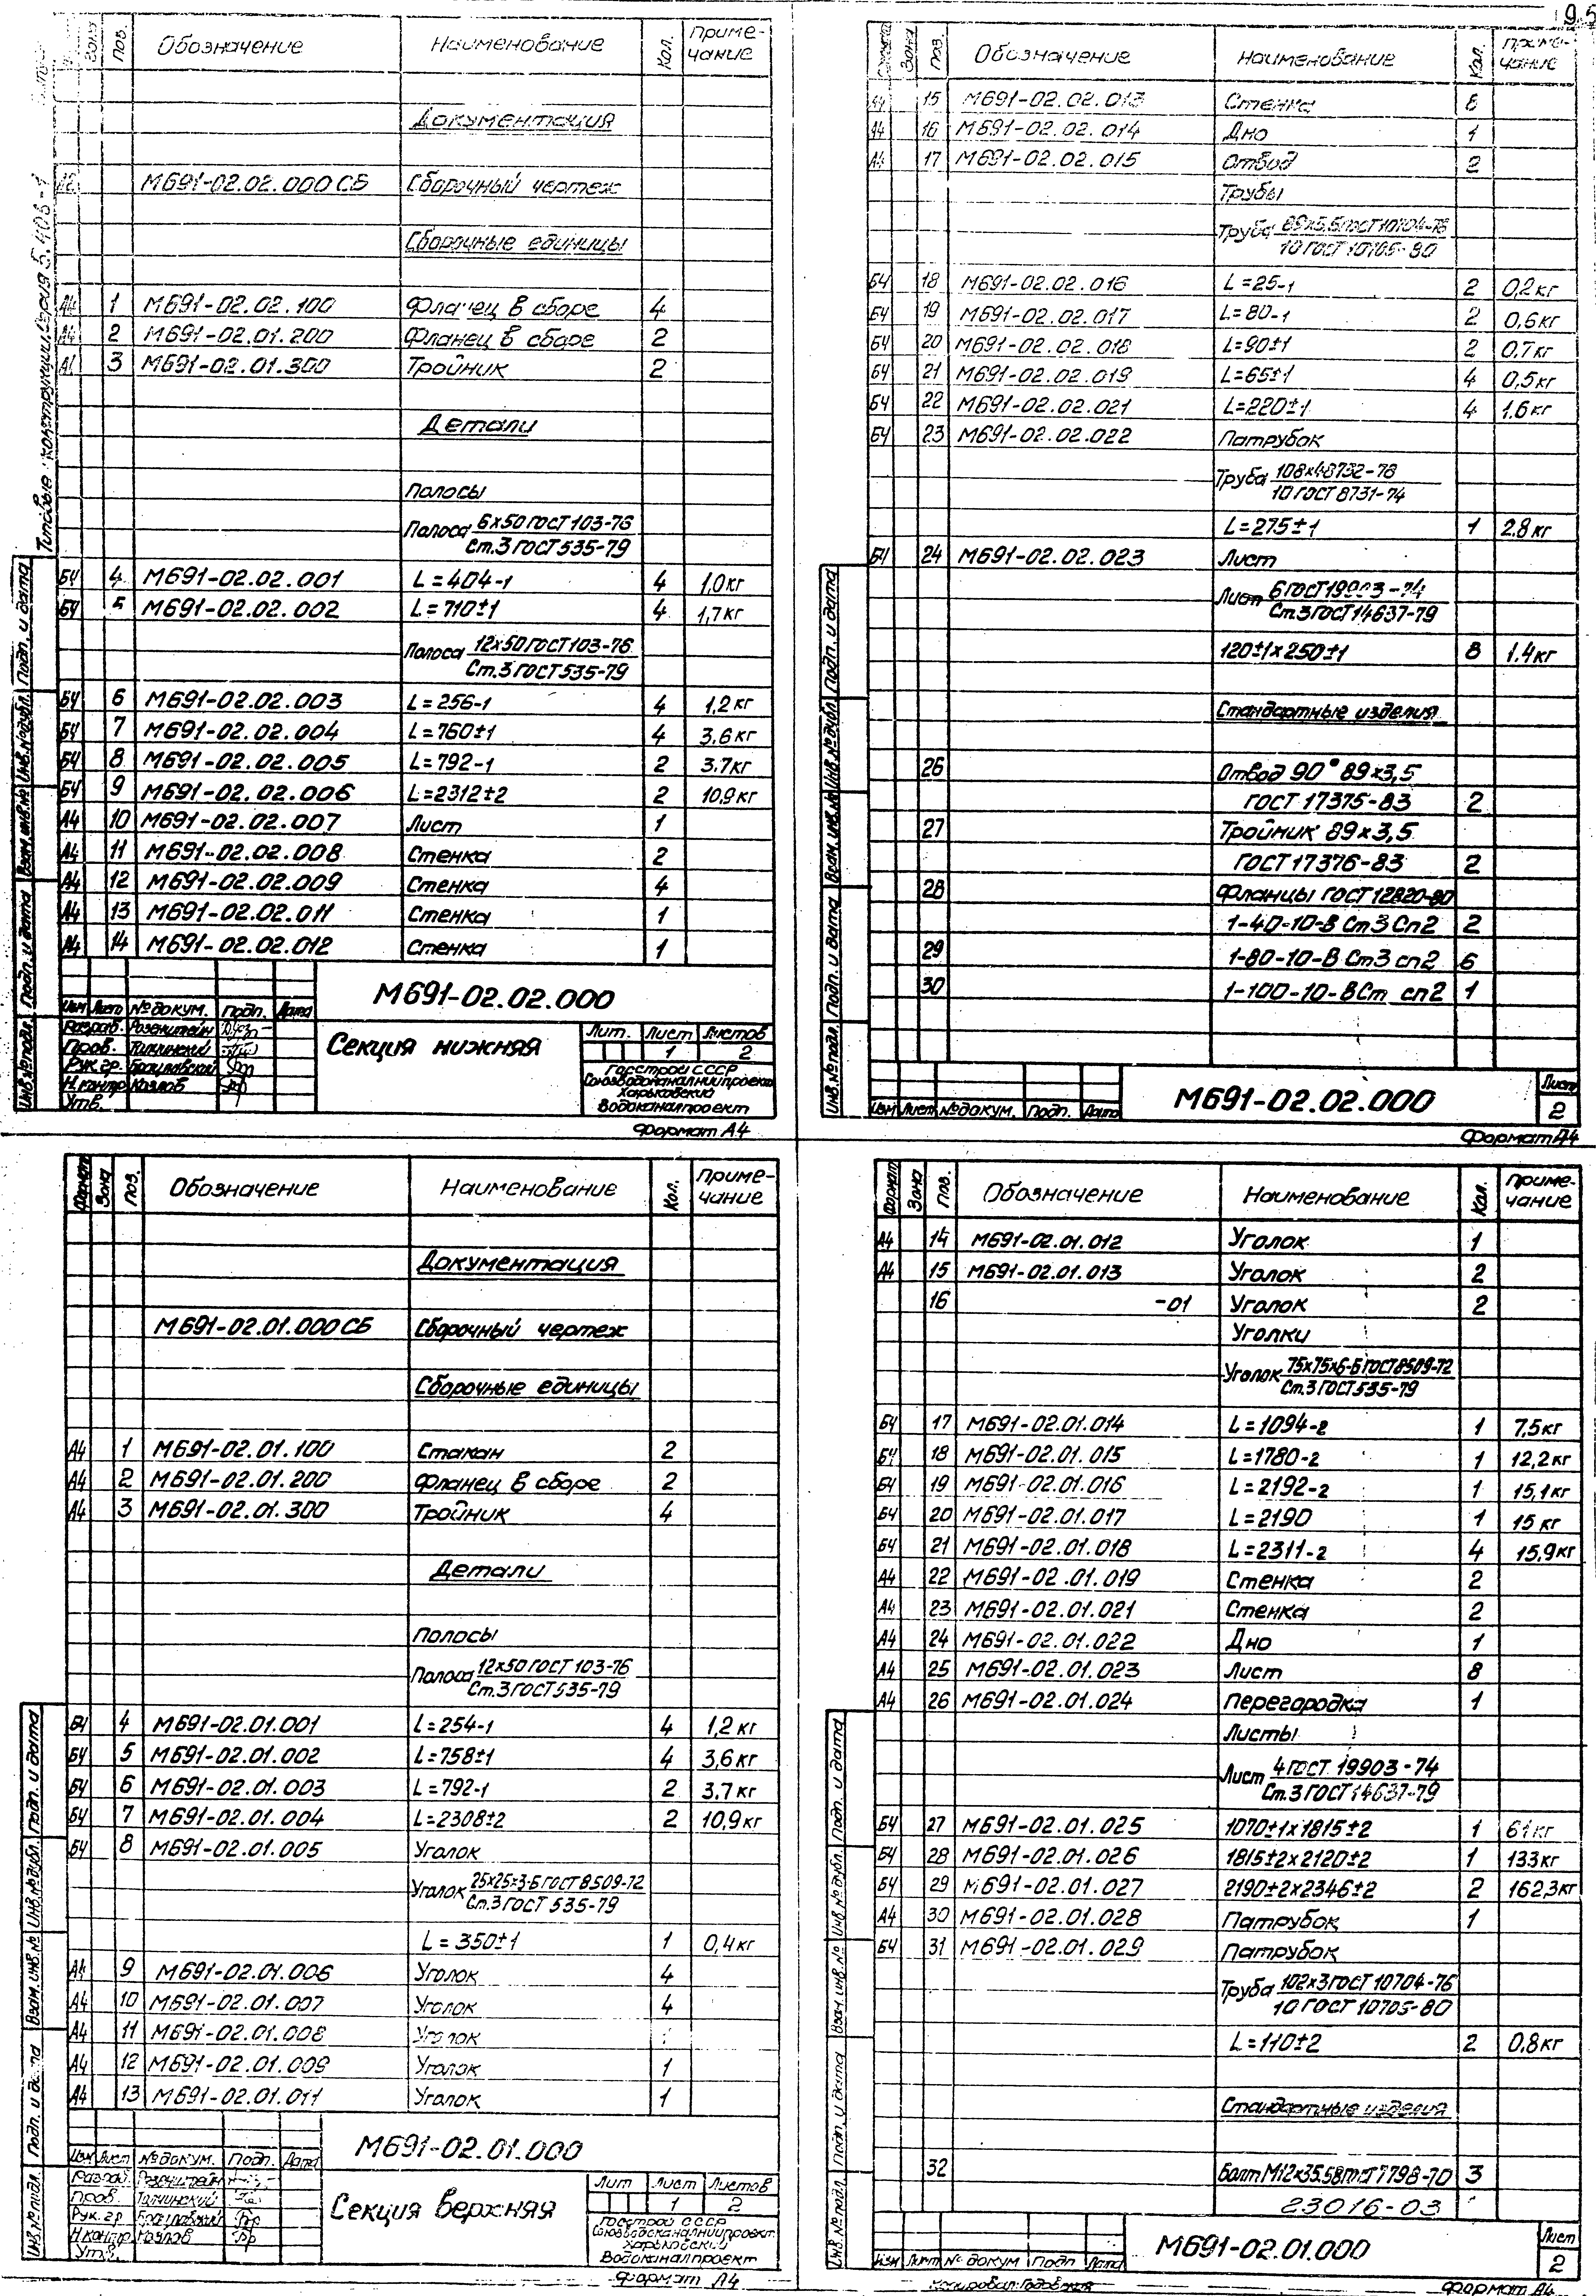 95
Типовые конструкции. Серия 5.408-1
Зона Поз. Обозначение Наименование Кол. Приме-
чание
Документация
М691-02.02.000 СБ Сборочный чертеж
Сборочные единицы
А4 1 М691-02.02.100 Фланец в сборе 4
А4 2 М691-02.01.200 Фланец в сборе 2
3 М691-02.01.300 Тройник 2
Детали
Полосы
Полоса 6х50 ГОСТ 103-76
Ст.3 ГОСТ 535-79
БЧ 4 М691-02.02.001 L=404-1 4 1,0кг
БЧ 5 М691-02.02.002 L=710±1 4 1,7кг
Полоса 12х50 ГОСТ 103-76
Ст.3 ГОСТ 535-79
БЧ 6 М691-02.02.003 L=256-1 4 1,2кг
БЧ 7 М691-02.02.004 L=760±1 4 3,6кг
БЧ 8 М691-02.02.005 L=792-1 2 3,7кг
БЧ 9 М691-02.02.006 L=2312±2 2 10,9кг
А4 10 М691-02.02.007 Лист 1
А4 11 М691-02.02.008 Стенка 2
А4 12 М691-02.02.009 Стенка 4
А4 13 М691-02.02.011 Стенка 1
А4 14 М691-02.02.012 Стенка 1
Инв.№подл. Подп. и дата Взам.инв.№ Инв.№дубл. Подп. и дата
М691-02.02.000
Изм Лист №докум. Подп. Дата
Разраб. Розенштейн
Пров.
Рук.гр. Брацлавский
Н.контр Козлов
Утв.
Секция нижняя
Лит. Лист Листов
1 2
Госстрой СССР
Союзводоканалниипроект
Харьковский
Водоканалпроект
Формат А4
Зона Поз. Обозначение Наименование Кол. Приме-
чание
А4 15 М691-02.02.013 Стенка
А4 16 М691-02.02.014 Дно 1
А4 17 М691-02.02.015 Отвод 2
Трубы
Труба 89х3,5 ГОСТ 10704-76
10 ГОСТ 10705-80
БЧ 18 М691-02.02.016 L=25-1 2 0,2кг
БЧ 19 М691-02.02.017 L=80-1 2 0,6кг
БЧ 20 М691-02.02.018 L=90±1 2 0,7кг
БЧ 21 М691-02.02.019 L=65±1 4 0,5кг
БЧ 22 М691-02.02.021 L=220±1 4 1,6кг
БЧ 23 М691-02.02.022 Патрубок
Труба 108х4 8732-78
10 ГОСТ 8731-74
L=275±1 1 2.8кг
БЧ 24 М691-02.02.023 Лист
Лист 6 ГОСТ 19903-74
Ст.3 ГОСТ 14637-79
120±1х250±1 8 1.4кг
Стандартные изделия
26 Отвод 90° 89х3,5
ГОСТ 17375-83 2
27 Тройник 89х3,5
ГОСТ 17376-83 2
28 Фланцы ГОСТ 12820-80
1-40-10-В Ст3 Сп2 2
29 1-80-10-В Ст3 сп2 6
30 1-100-10-В Ст сп2 1
Инв.№подл. Подп. и дата Взам. инв.№ Инв.№дубл. Подп. и дата
Изм Лист №докум. Подп. Дата
М691-02.02.000
Лист
2
Формат А4
Формат Зона Поз. Обозначение Наименование Кол. Приме-
чание
Документация
М691-02.01.000 СБ Сборочный чертеж
Сборочные единицы
А4 1 М691-02.01.100 Стакан 2
А4 2 М691-02.01.200 Фланец в сборе 2
А4 3 М691-02.01.300 Тройник 4
Детали
Полосы
Полоса 12х50 ГОСТ 103-76
Ст.3 ГОСТ 535-79
БЧ 4 М691-02.01.001 L=254-1 4 1,2кг
БЧ 5 М691-02.01.002 L=758±1 4 3,6кг
БЧ 6 М691-02.01.003 L=792-1 2 3.7кг
БЧ 7 М691-02.01.004 L=2308±2 2 10,9кг
БЧ 8 М691-02.01.005 Уголок
Уголок 25х25х3-Б ГОСТ 8509-72
Ст.3 ГОСТ 535-79
L=350±1 1 0,4кг
А4 9 М691-02.01.006 Уголок 4
А4 10 М691-02.01.007 Уголок 4
А4 11 М691-02.01.008 Уголок
А4 12 М691-02.01.009 Уголок 1
А4 13 М691-02.01.011 Уголок 1
Инв.№подл. Подп. и дата Взам.инв.№ Инв.№дубл. Подп. и дата
М691-02.01.000
Изм Лист №докум. Подп. Дата
Разраб. Розенштейн
Пров.
Рук.гр Брацлавский
Н.контр Козлов
Утв.
Секция верхняя
Лит Лист Листов
1 2
Госстрой СССР
Союзводоканалниипроект
Харьковский
Водоканалпроект
Формат А4
Формат Зона Поз. Обозначение Наименование Кол. Приме-
чание
А4 14 М691-02.01.012 Уголок 1
А4 15 М691-02.01.013 Уголок 2
16 -01 Уголок 2
Уголки
Уголок 75х75х6-Б ГОСТ 8509-72
Ст.3 ГОСТ 535-79
БЧ 17 М691-02.01.014 L=1094-2 1 7,5кг
БЧ 18 М691-02.01.015 L=1780-2 1 12,2кг
БЧ 19 М691-02.01.016 L=2192-2 1 15,1кг
БЧ 20 М691-02.01.017 L=2190 1 15 кг
БЧ 21 М691-02.01.018 L=2311-2 4 15,9кг
А4 22 М691-02.01.019 Стенка 2
А4 23 М691-02.01.021 Стенка 2
А4 24 М691-02.01.022 Дно 1
А4 25 М691-02.01.023 Лист 8
А4 26 М691-02.01.024 Перегородка 1
Листы
Лист 4 ГОСТ 19903-74
Ст.3 ГОСТ 14637-79
БЧ 27 М691-02.01.025 1070±1х1815±2 1 61кг
БЧ 28 М691-02.01.026 1815±2х2120±2 1 133кг
БЧ 29 М691-02.01.027 2190±2х2346±2 2 162,3кг
А4 30 М691-02.01.028 Патрубок 1
БЧ 31 М691-02.01.029 Патрубок
Труба 102х3 ГОСТ 10704-76
10 ГОСТ 10705-80
L=110±2 2 0,8кг
Стандартные изделия
32 Болт М12х35.58 ГОСТ 7798-70 3
23016-03
Инв.№подл. Подп. и дата Взам. инв.№ Инв.№дубл. Подп. и дата
Изм Лист №докум Подп Дата
М691-02.01.000
Лист
2
Копировал: Годовская
Формат А4